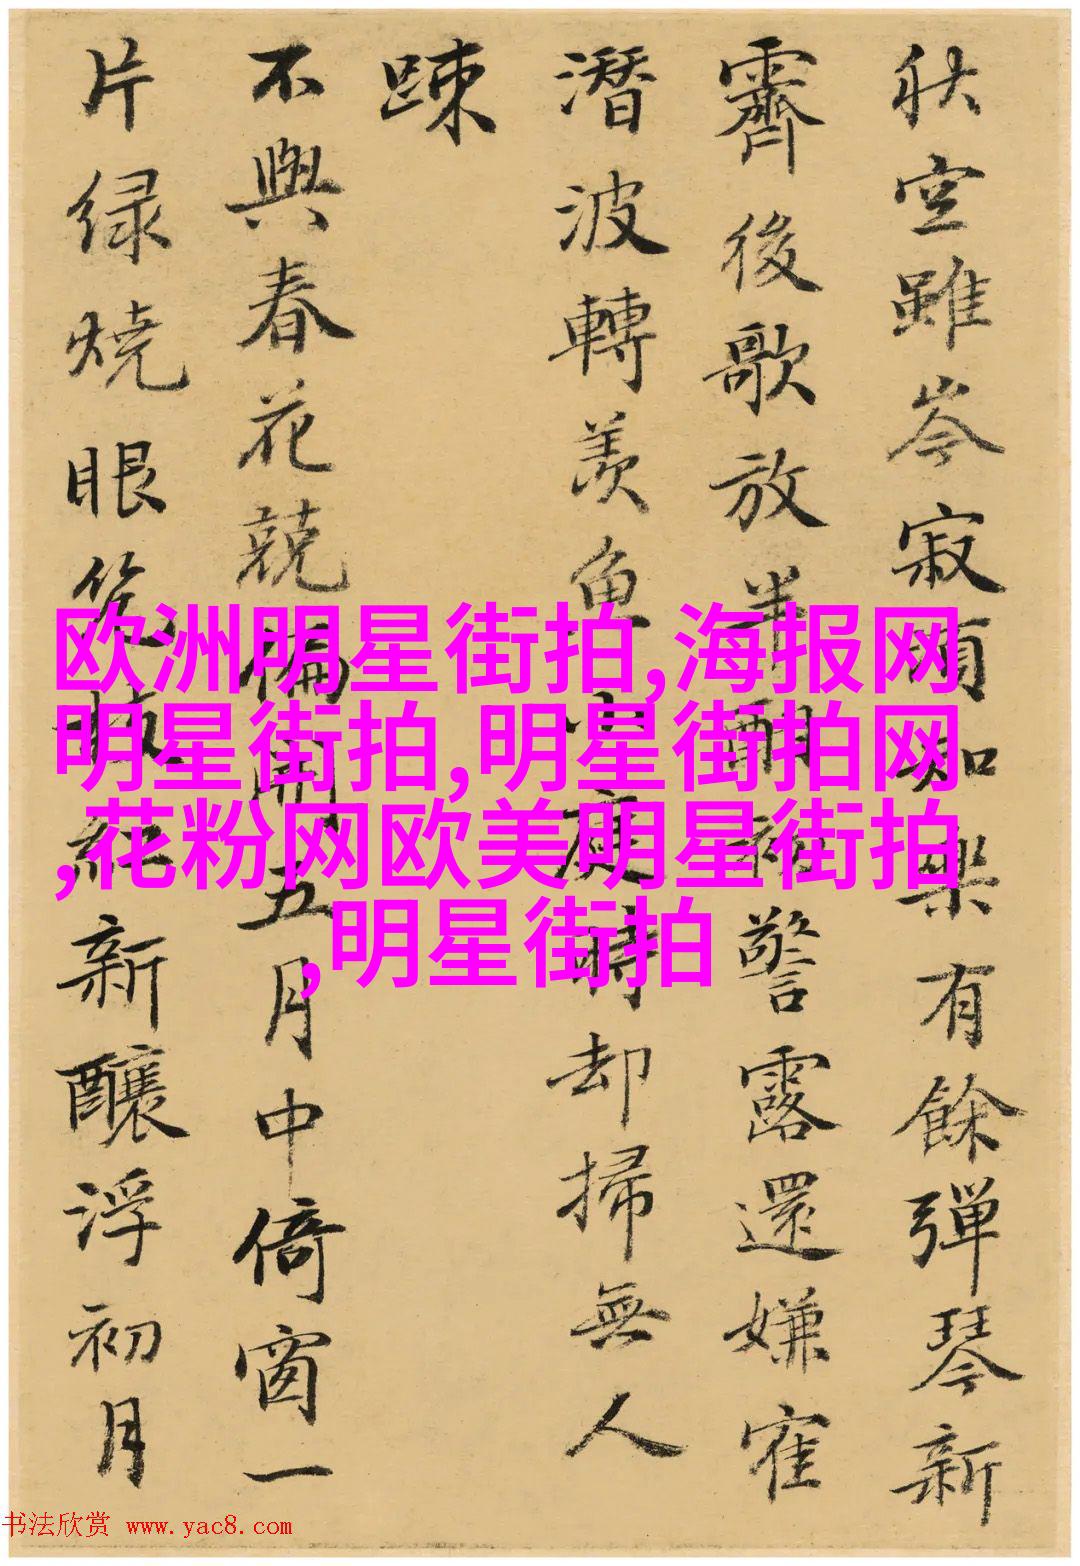 秋空雖岑寂頗知樂有餘彈琴新
霽後歌放半酣初警露還嫌寉
潛波轉羨魚小庭時却掃無人
踈
不與春花競偏開五月中倚窗一
片绿燒眼
紅新釀浮初月
欧洲明星街拍,海报网
明星街拍,明星街拍网
,花粉网欧美明星街拍
,明星街拍
书法欣赏 www.yac8.com